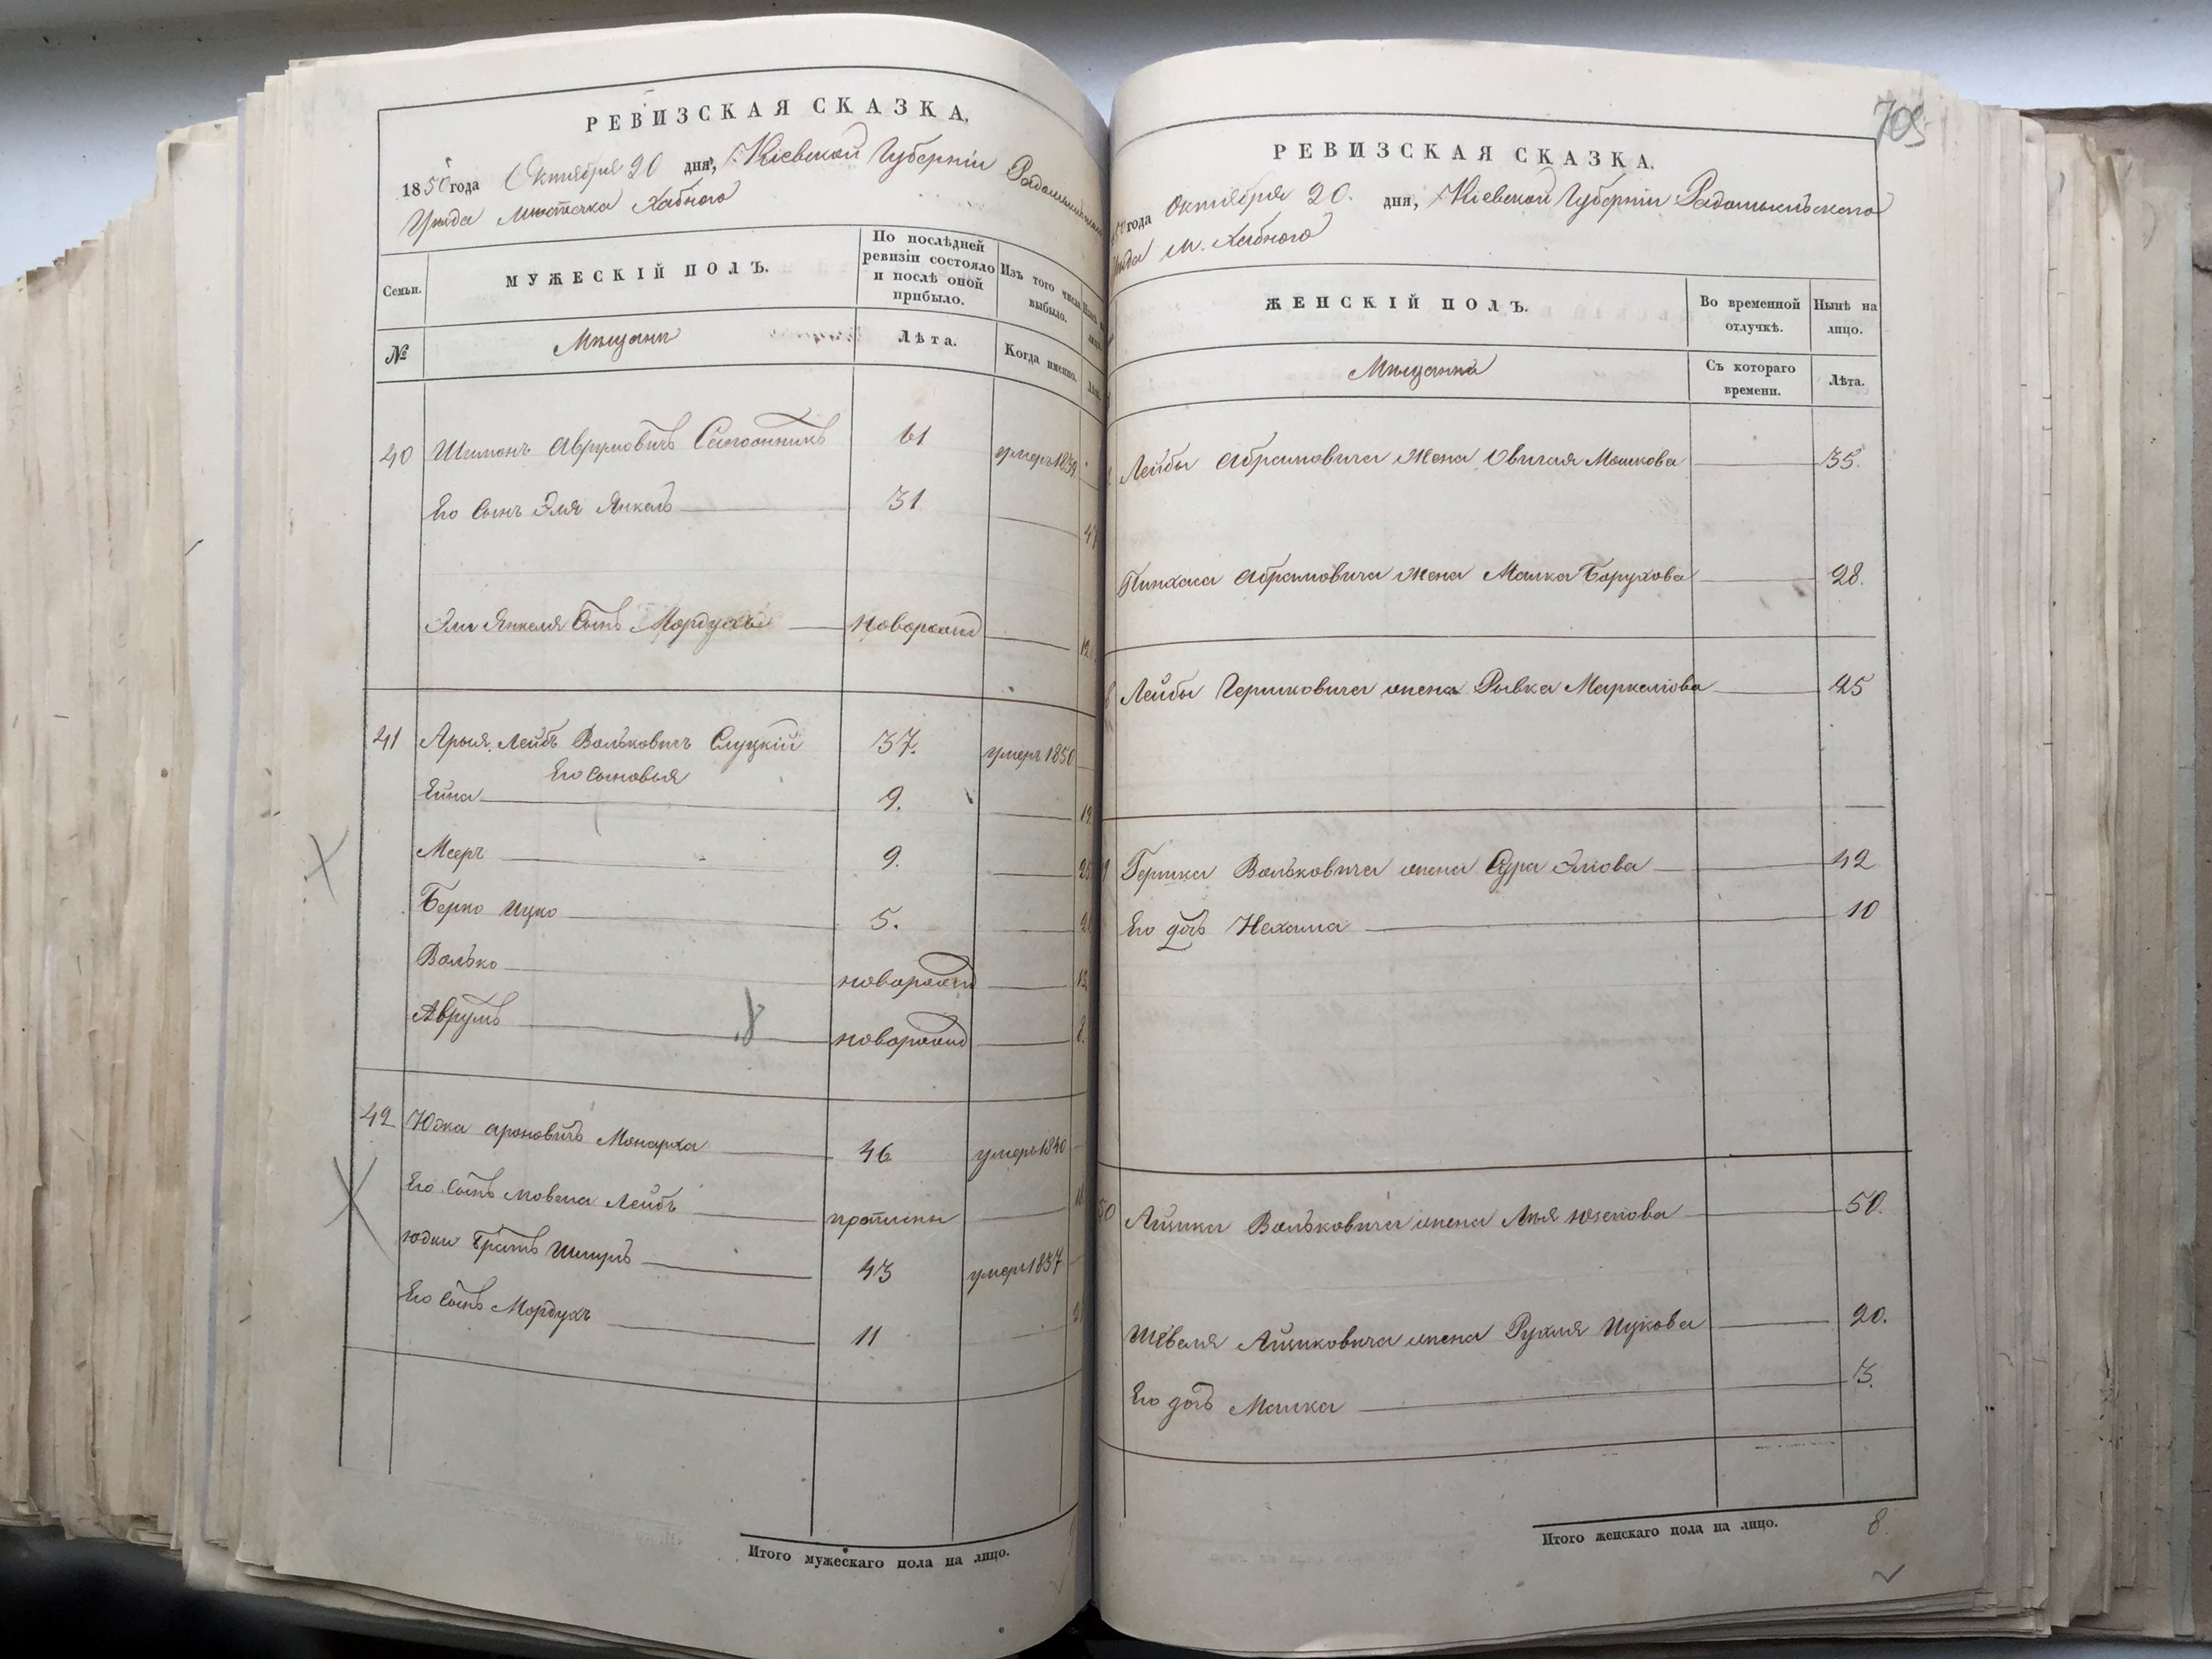 РЕВИЗСКАЯ СКАЗКА.
1850 года Октября 20 дня, Кіевской Губерніи Радомысльскаго
Уѣзда Мѣстечка Хабного
Семьи.
МУЖЕСКІЙ ПОЛЪ.
По послѣдней ревизіи состояло и послѣ оной прибыло.
Изъ того числа выбыло.
№
Мѣщане
Лѣта.
Когда именно.
40 Шимонъ Аврумовичъ 61 умеръ 1839
Его Сынъ Эля Янкель 31 47
Эли Янкеля Сынъ Мордухъ новорожд 12
41 Арыя Лейбъ Вольковичъ Слуцкій 37. умеръ 1850
Его Сыновья
9. 19.
Мееръ 9. 25
Берко Ицко 5. 21
Волько новорожд 13
Аврумъ новорожд 8.
42 Юдка Ароновичъ Монарха 46 умеръ 1840
Его Сынъ Мовша Лейбъ прописны
Юдки братъ Шмуль 43 умеръ 1837
Его Сынъ Мордухъ 11
Итого мужескаго пола на лицо.
709
РЕВИЗСКАЯ СКАЗКА.
года Октября 20. дня, Кіевской Губерніи Радомысльскаго
Уѣзда м. Хабного
ЖЕНСКІЙ ПОЛЪ.
Во временной отлучкѣ.
Нынѣ на лицо.
Мѣщанки
Съ котораго времени.
Лѣта.
Лейбы Абрамовича жена Мошкова 35.
Пинхаса Абрамовича жена Малка Борухова 28.
Лейбы Гершковича жена Рывка 25
Гершка Вольковича жена Сура Элiова 42
Его дочь Нехама 10
50 Айзика Вольковича жена Лыя 50.
Айзиковича жена Рухля Ицкова 20.
Его дочь Малка 3.
Итого женскаго пола на лицо. 8.